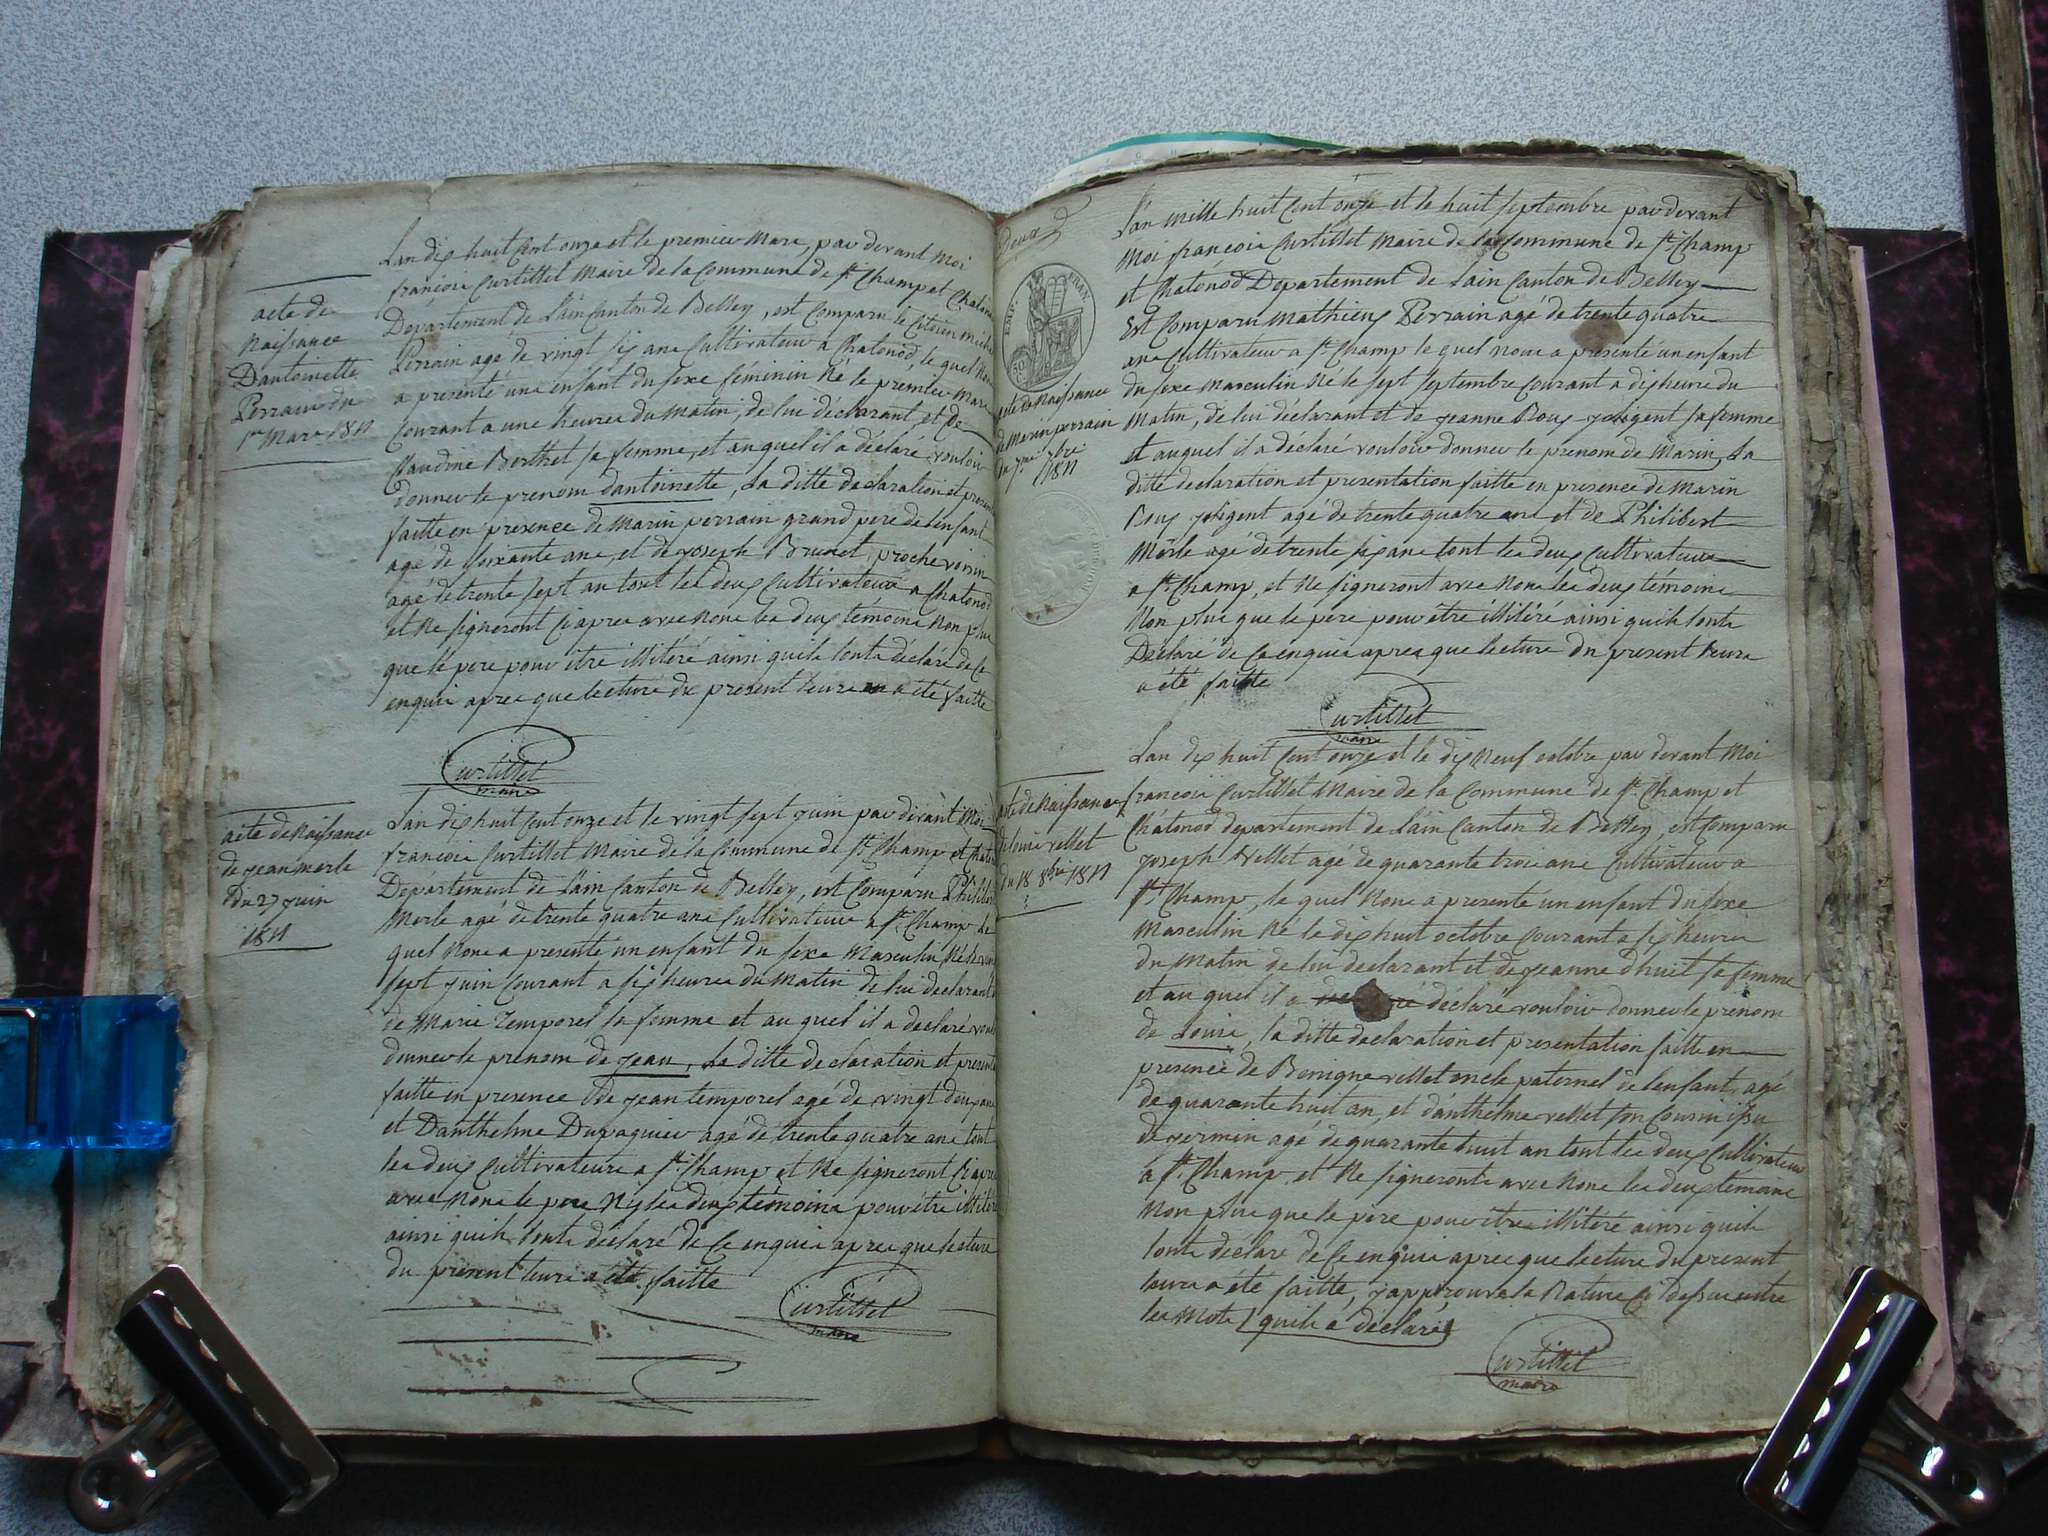 acte de
Naissance
Dantoinette
Perrain du
1er Mars 1811
Lan dix huit Cent onze et le premier Mars, par devant Moi
françois Curtillet Maire de la Commune de St Champ et
Departement de Lain Canton de Belley, est Comparu le Citoien
Perrain age de vingt six ans Cultivateur a Chatonod, le quel Nous
a presenté une enfant du sexe féminin Né le premier Mars
Courant a une heures du Matin, de lui déclarant et de
Claudine Berthet sa femme, et au quel il a déclaré vouloir
donner le prenom dantoinette, La ditte declaration et
faitte en presence de Marin perrain grand pere de lenfant
agé de soixante ans, et de joseph Brunet, proche voisin
agé de trente sept an tout les deux Cultivateurs a Chatonod
et Ne signeront Ci apres avec Nous les deux témoins Non plus
que le pere pour être illitéré ainsi quils lonts déclaré de Ce
enquis apres que lecture du present leurs a été faitte
Curtillet
maire
acte de Naissance
de jean merle
du 27 juin
1811
Lan dix huit Cent onze et le vingt sept juin par devant Moi
françois Curtillet Maire de la Commune de St Champ et
Departement de Lain Canton de Belley, est Comparu
Merle agé de trente quatre ans Cultivateur a St Champ le
quel Nous a presenté un enfant du sexe Masculin Né le
sept juin Courant a six heures du Matin de lui declarant
de Marie Temporel sa femme et au quel il a declaré
donner le prenom de jean, La ditte declaration et
faitte en presence de jean temporel agé de vingt deux ans
et Danthelme Dupaquier agé de trente quatre ans tout
les deux Cultivateurs a St Champ et Ne signeront Ci apres
avec Nous le pere Ny les deux témoins pour être
ainsi quils lonts déclaré de Ce enquis apres que lecture
du present leurs a été faitte
Curtillet
maire
Deux
EMP. FRAN.
50
acte de Naissance
de Marin perrain
du 7me 7bre
1811
Lan Mille huit Cent onze et le huit septembre par devant
Moi françois Curtillet Maire de la Commune de St Champ
et Chatonod Departement de Lain Canton de Belley
Est Comparu Mathieu Perrain agé de trente quatre
ans Cultivateur a St Champ le quel Nous a presenté un enfant
du sexe Masculin Né le sept septembre Courant a dix heures du
Matin, de lui déclarant et de jeanne sa femme
et au quel il a declaré vouloir donner le prenom de Marin, La
ditte declaration et presentation faitte en presence de Marin
agé de trente quatre ans et de Philibert
Merle agé de trente six ans tout les deux Cultivateurs
a St Champ, et Ne signeront avec Nous les deux témoins
Non plus que le pere pour être illitéré ainsi quils lonts
Déclaré de Ce enquis apres que lecture du present leurs
a été faitte
Curtillet
maire
acte de Naissance
de louis vellet
du 18 8bre 1811
Lan dix huit Cent onze et le dix Neuf octobre par devant Moi
francois Curtillet Maire de la Commune de St Champ et
Chatonod departement de Lain Canton de Belley, est Comparu
joseph Vellet agé de quarante trois ans Cultivateur a
St Champ, le quel Nous a presenté un enfant du sexe
Masculin Né le dix huit octobre Courant a six heures
du Matin de lui declarant et de jeanne dhuit sa femme
et au quel il a déclaré vouloir donner le prenom
de Louis, la ditte declaration et presentation faitte en
presence de Benigne vellet oncle paternel de lenfant, agé
de quarante huit an, et danthelme vellet son Cousin issu
de germin agé de quarante huit an tout les deux Cultivateurs
a St Champ, et Ne signeronts avec Nous les deux temoins
Non plus que le pere pour être illitéré ainsi quils
lonts declare de Ce enquis apres que lecture du present
leurs a été faitte, japprouve la Rature Ci dessus entre
les Mots / quils a déclaré
Curtillet
maire